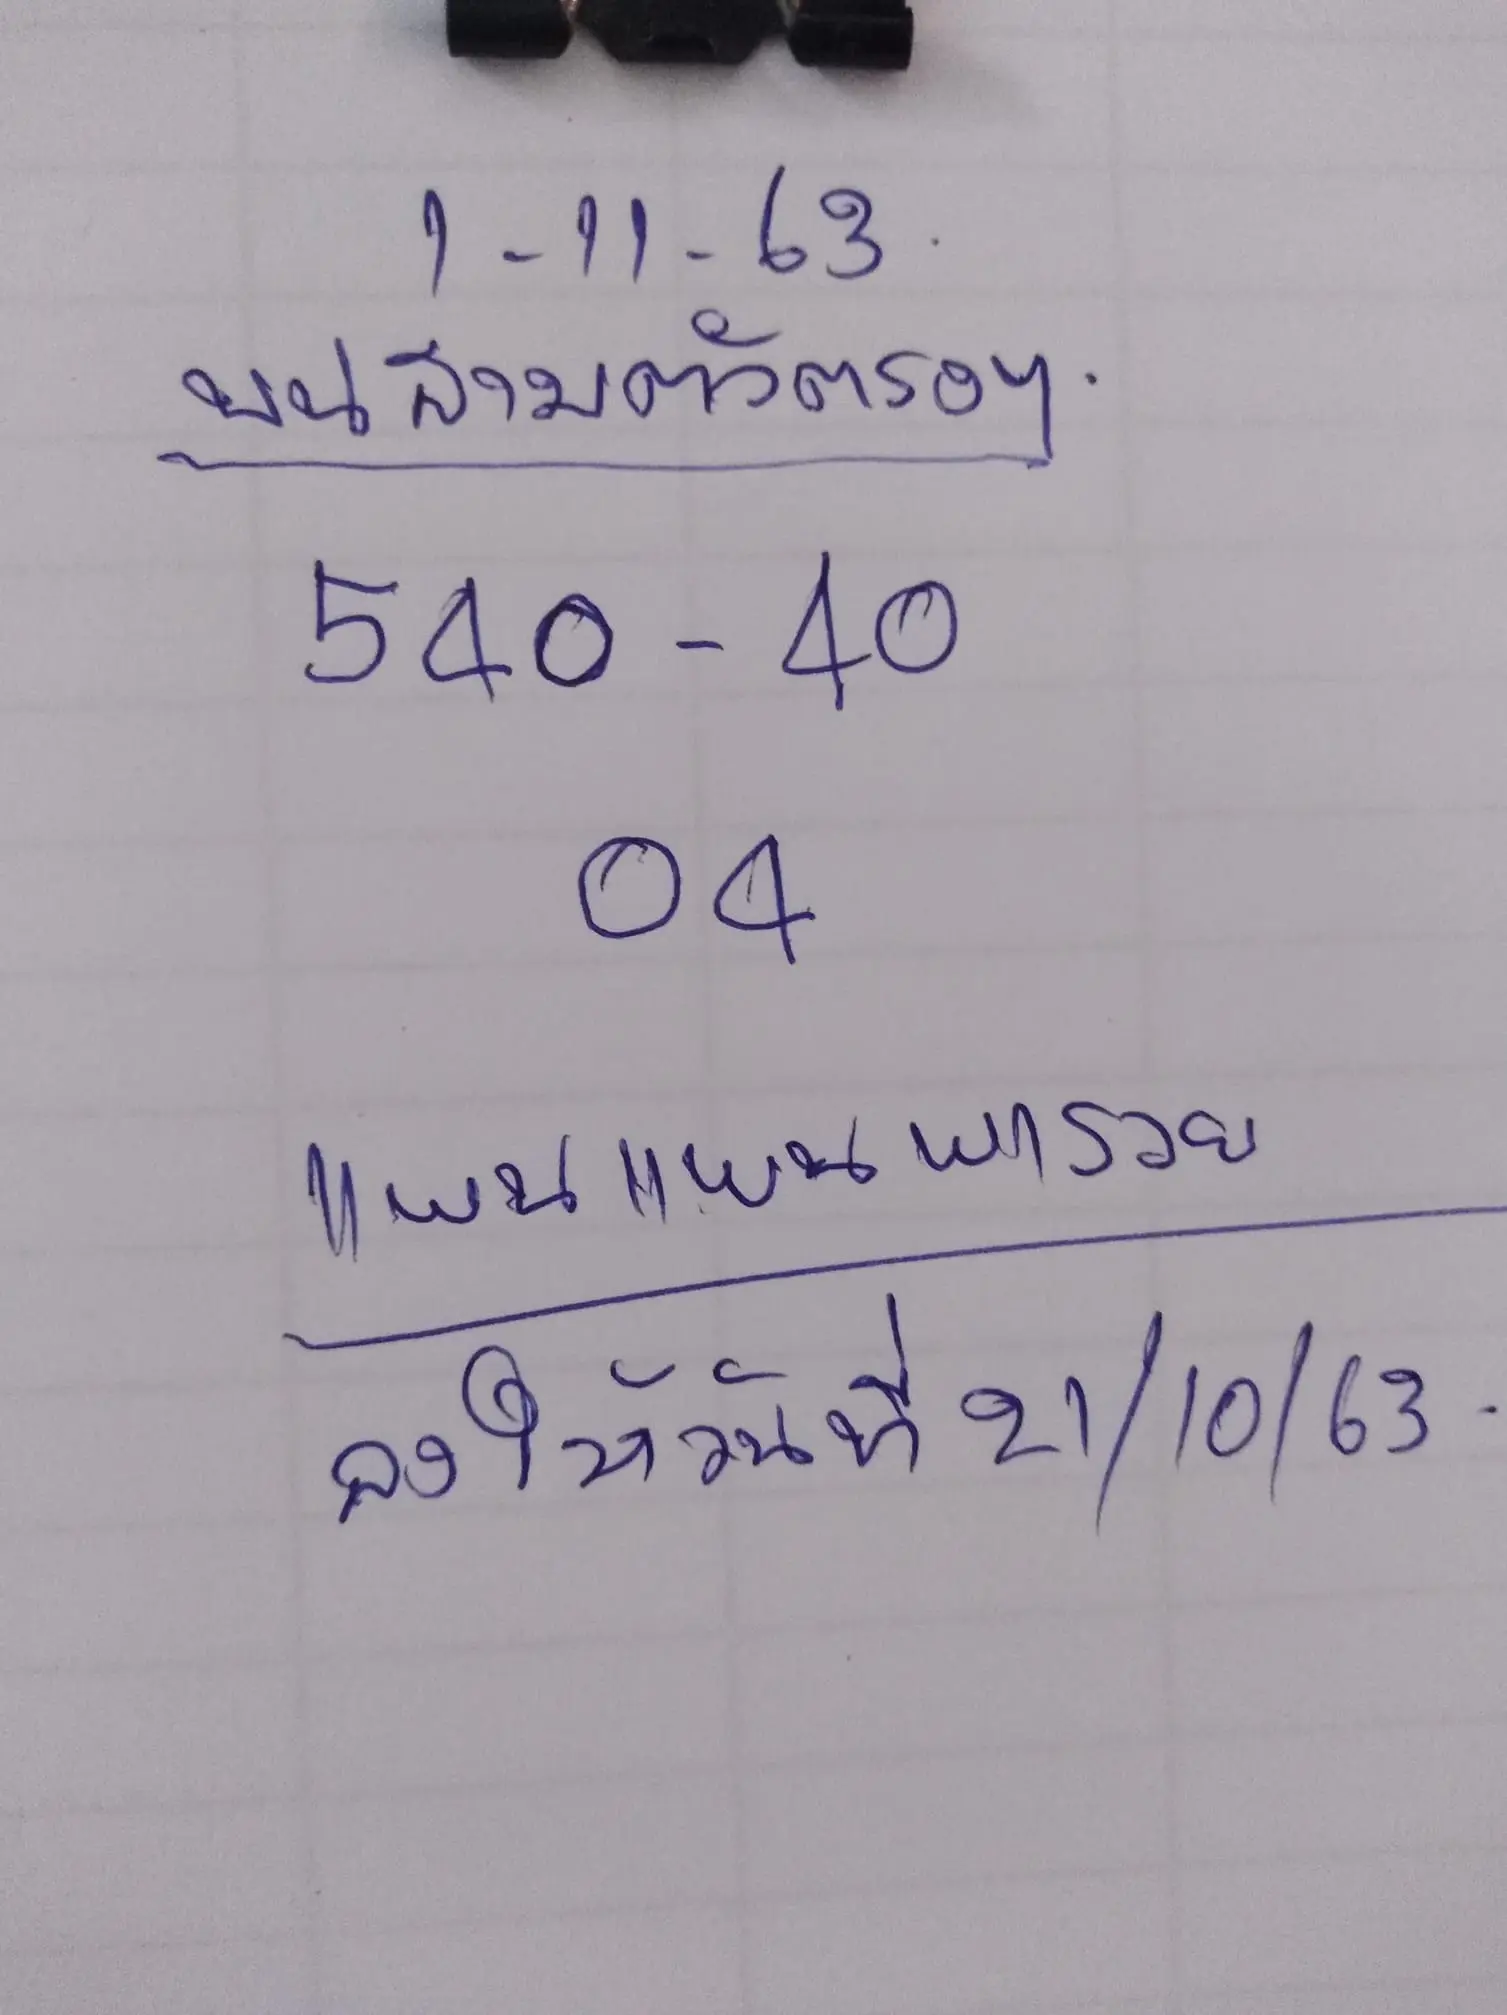 1-11-63.
บนสามตัวตรงๆ.
540-40
04
แพนแพนพารวย
ลงให้วันที่ 21/10/63.